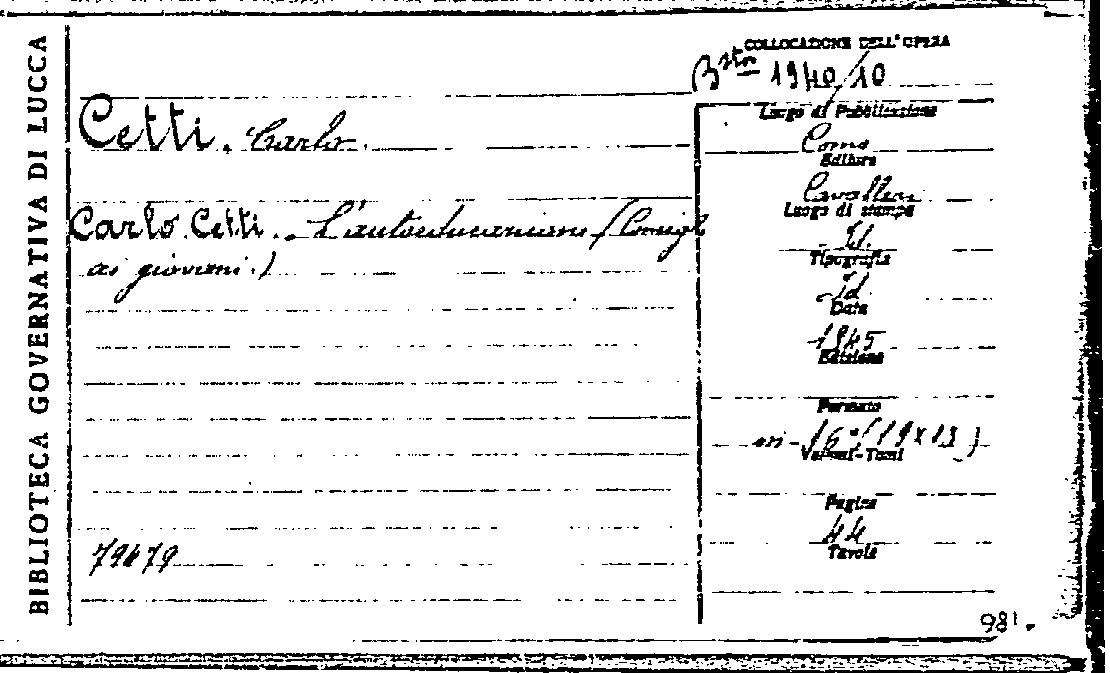 BIBLIOTECA GOVERNATIVA DI LUCCA
COLLOCAZIONE DELL'OPERA
Bˢᵗᵃ 1940/10
Cetti. Carlo.
Luogo di Pubblicazione
Como
Editore
Cavalleri
Luogo di stampa
Id.
Tipografia
Id.
Data
1945
Edizione
Formato
in-16°(19x13)
Volumi-Tomi
Pagine
44
Tavole
Carlo Cetti. - L'autoeducazione (Consigli
ai giovani.)
79479
981.